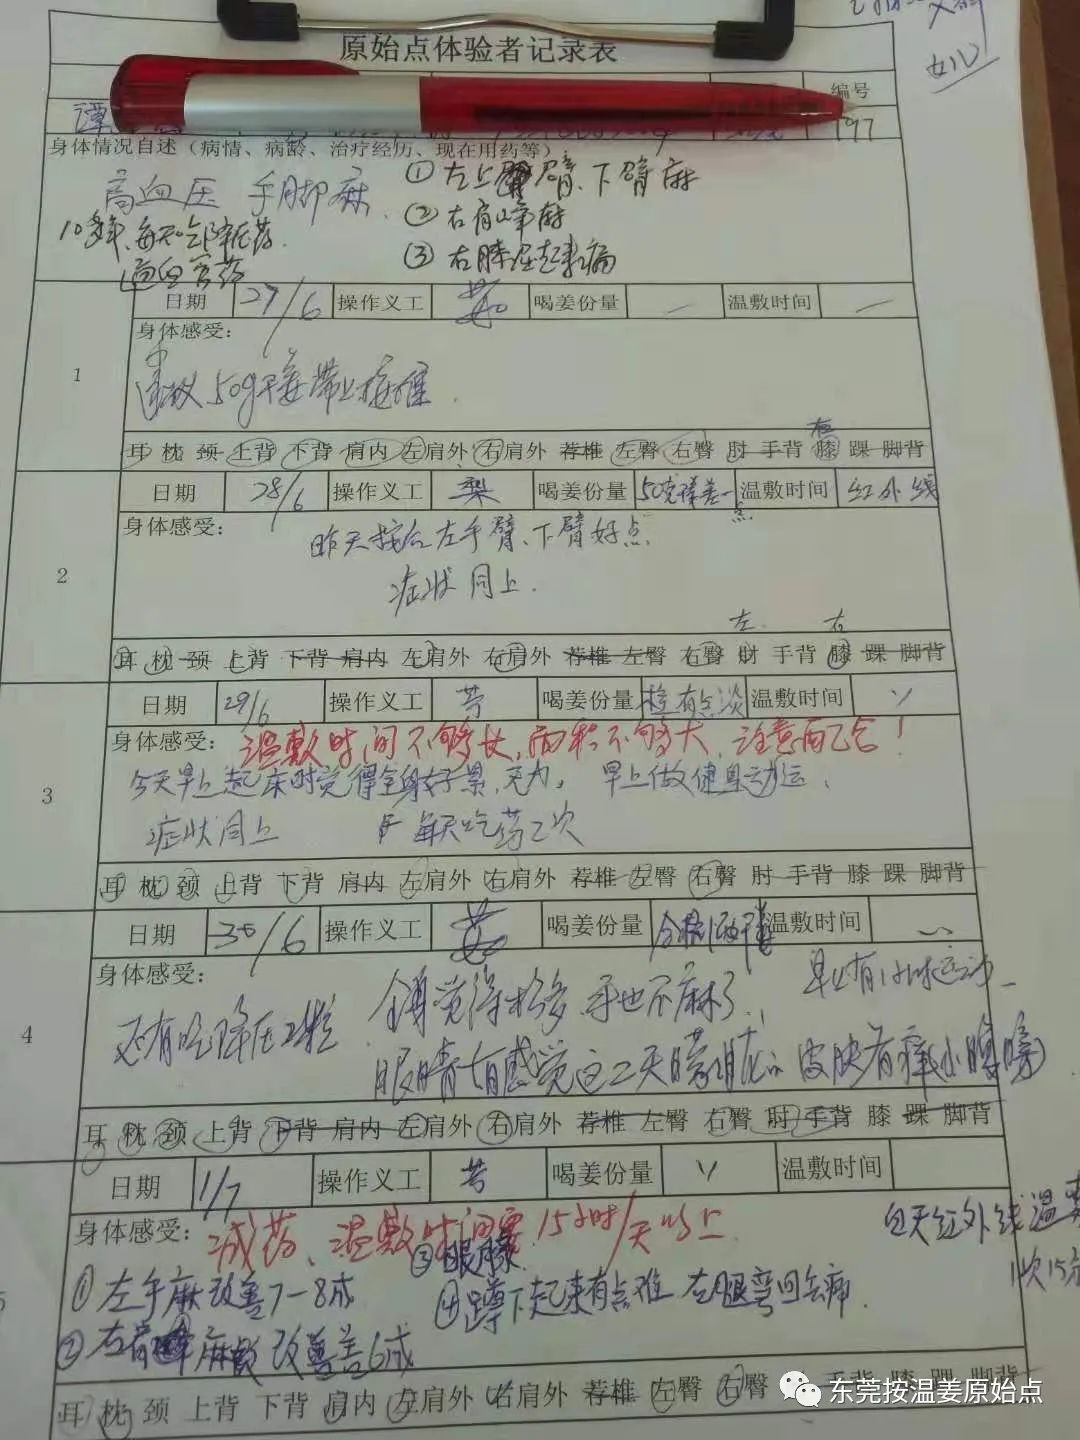 原始点体验者记录表
编号
谭
197
身体情况自述（病情、病龄、治疗经历、现在用药等）
高血压 手脚麻
10多年、每天吃降压药
通血管药
①左上臂、下臂麻
②右肩峰麻
③右膝屈起来痛
1
日期 27/6 操作义工 喝姜份量 — 温敷时间 —
身体感受：
建议50g干姜带上接榷
耳 枕 颈 上背 下背 肩内 左肩外 右肩外 荐椎 左臀 右臀 肘 手背 膝 踝 脚背
右
2
日期 28/6 操作义工 梨 喝姜份量 50克 差一点 温敷时间 红外线
身体感受：
昨天按后左手臂、下臂好点
症状同上.
左 右
耳 枕 颈 上背 下背 肩内 左肩外 右肩外 荐椎 左臀 右臀 肘 手背 膝 踝 脚背
3
日期 29/6 操作义工 喝姜份量 有点淡 温敷时间
身体感受：温敷时间不够长,面积不够大,注意面配合！
今天早上起床时觉得全身好累,无力。 早上做健身运动,
症状同上 每天吃药2次
耳 枕 颈 上背 下背 肩内 左肩外 右肩外 荐椎 左臀 右臀 肘 手背 膝 踝 脚背
4
日期 30/6 操作义工 喝姜份量 温敷时间
身体感受：
全身觉得松多,手也不麻了,
早上有1小时运动
还有吃降压2粒
眼睛有感觉这二天朦胧的 皮肤有痒(小腹旁)
耳 枕 颈 上背 下背 肩内 左肩外 右肩外 荐椎 左臀 右臀 肘 手背 膝 踝 脚背
5
日期 1/7 操作义工 喝姜份量 温敷时间
身体感受：减药、温敷时间要15小时/天以上
白天红外线温
1次15分
①左手麻改善7-8成
②右肩峰麻改善6成
③眼朦
④蹲下起来有点难 左腿弯回会痛.
耳 枕 颈 上背 下背 肩内 左肩外 右肩外 荐椎 左臀 右臀 手背 膝 踝 脚背
东莞按温姜原始点